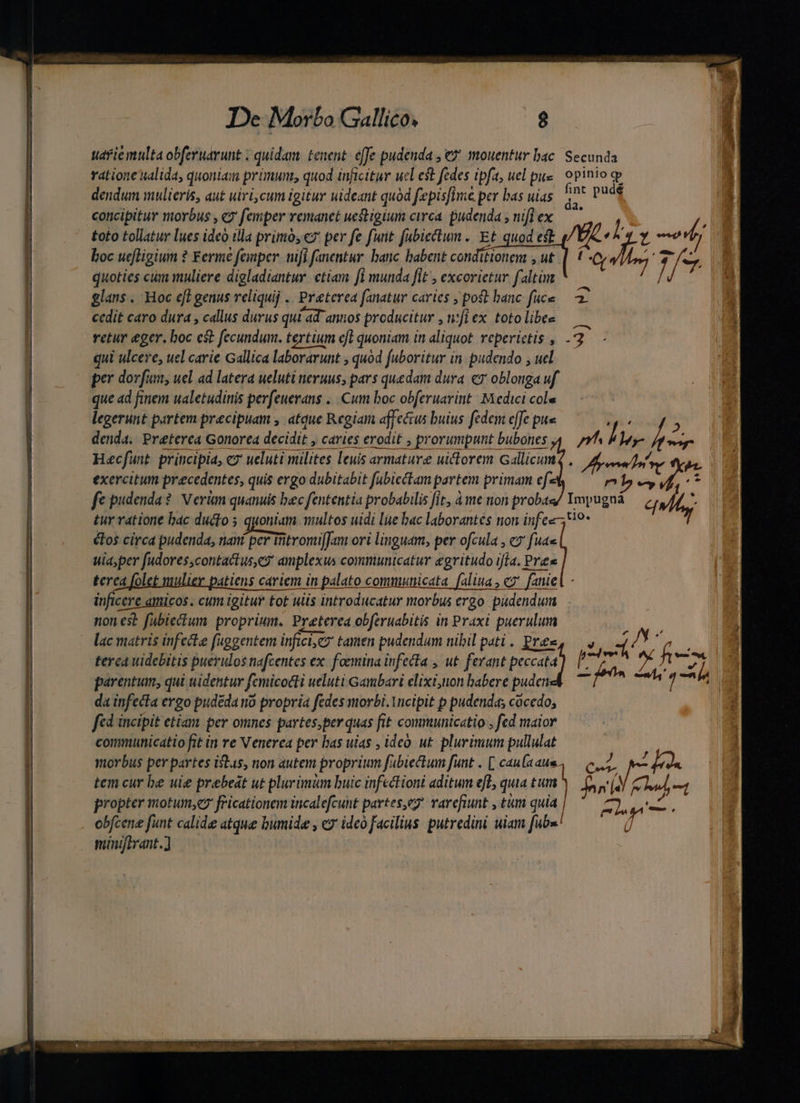 De Morbo Gallico. 8
uariè multa obseruarunt: quidam tenent esse pudenda, & mouentur hac
ratione ualida, quoniam primum, quod inficitur uel est sedes ipsa, uel pu=
dendum mulieris, aut uiri, cum igitur uideant quòd sæpissimè per has uias
concipitur morbus, & semper remanet uestigium circa pudenda, nisi ex
toto tollatur lues ideò illa primò, & per se sunt subiectum. Et quod est
hoc uestigium? Fermè semper nisi sanentur hanc habent conditionem, ut
quoties cum muliere digladiantur etiam si munda sit, excorietur saltim
glans. Hoc est genus reliquij. Præterea sanatur caries, post hanc suc=
cedit caro dura, callus durus qui ad annos producitur, nisi ex toto libe=
retur æger. hoc est secundum. tertium est quoniam in aliquot repertis,
qui ulcere, uel carie Gallica laborarunt, quòd suboritur in pudendo, uel
per dorsum, uel ad latera ueluti neruus, pars quædam dura & oblonga us
que ad finem ualetudinis perseuerans. Cum hoc obseruarint Medici cole
legerunt partem præcipuam, atque Regiam affectus huius sedem esse pu=
denda. Præterea Gonorea decidit, caries erodit, prorumpunt bubones
Hæc sunt principia, & ueluti milites leuis armaturæ uictorem Gallicum
exercitum præcedentes, quis ergo dubitabit subiectam partem primam es=
se pudenda? Verùm quanuis hæc sententia probabilis sit, à me non proba=
tur ratione hac ducto; quoniam multos uidi lue hac laborantes non infe=
ctos circa pudenda, nam per intromissam ori linguam, per oscula, & sua=
uia, per sudores, contactus, & amplexus communicatur ægritudo ista. Præ=
terea solet mulier patiens cariem in palato communicata saliua, & sanie
inficere amicos. cum igitur tot uiis introducatur morbus ergo pudendum
non est subiectum proprium. Præterea obseruabitis in Praxi puerulum
lac matris infectæ suggentem infici, & tamen pudendum nihil pati. Præ=
terea uidebitis puerulos nascentes ex fœmina infecta, ut ferant peccata
parentum, qui uidentur semicocti ueluti Gambari elixi, non habere puden=
da infecta ergo pudēda nō propria sedes morbi. Incipit p pudenda, cōcedo,
sed incipit etiam per omnes partes, per quas fit communicatio, sed maior
communicatio fit in re Venerea per has uias, ideò ut plurimum pullulat
morbus per partes istas, non autem proprium subiectum sunt. [ causa au=
tem cur hæ uiæ præbeāt ut plurimùm huic infectioni aditum est, quia tum
propter motum, & fricationem incalescunt partes, & rarefiunt, tùm quia
obscenæ sunt calidæ atque humidæ, & ideò facilius putredini uiam sub=
ministrant.]
Secunda
opinio q
sint pudē
da.
2
.3
Impugna
tio.